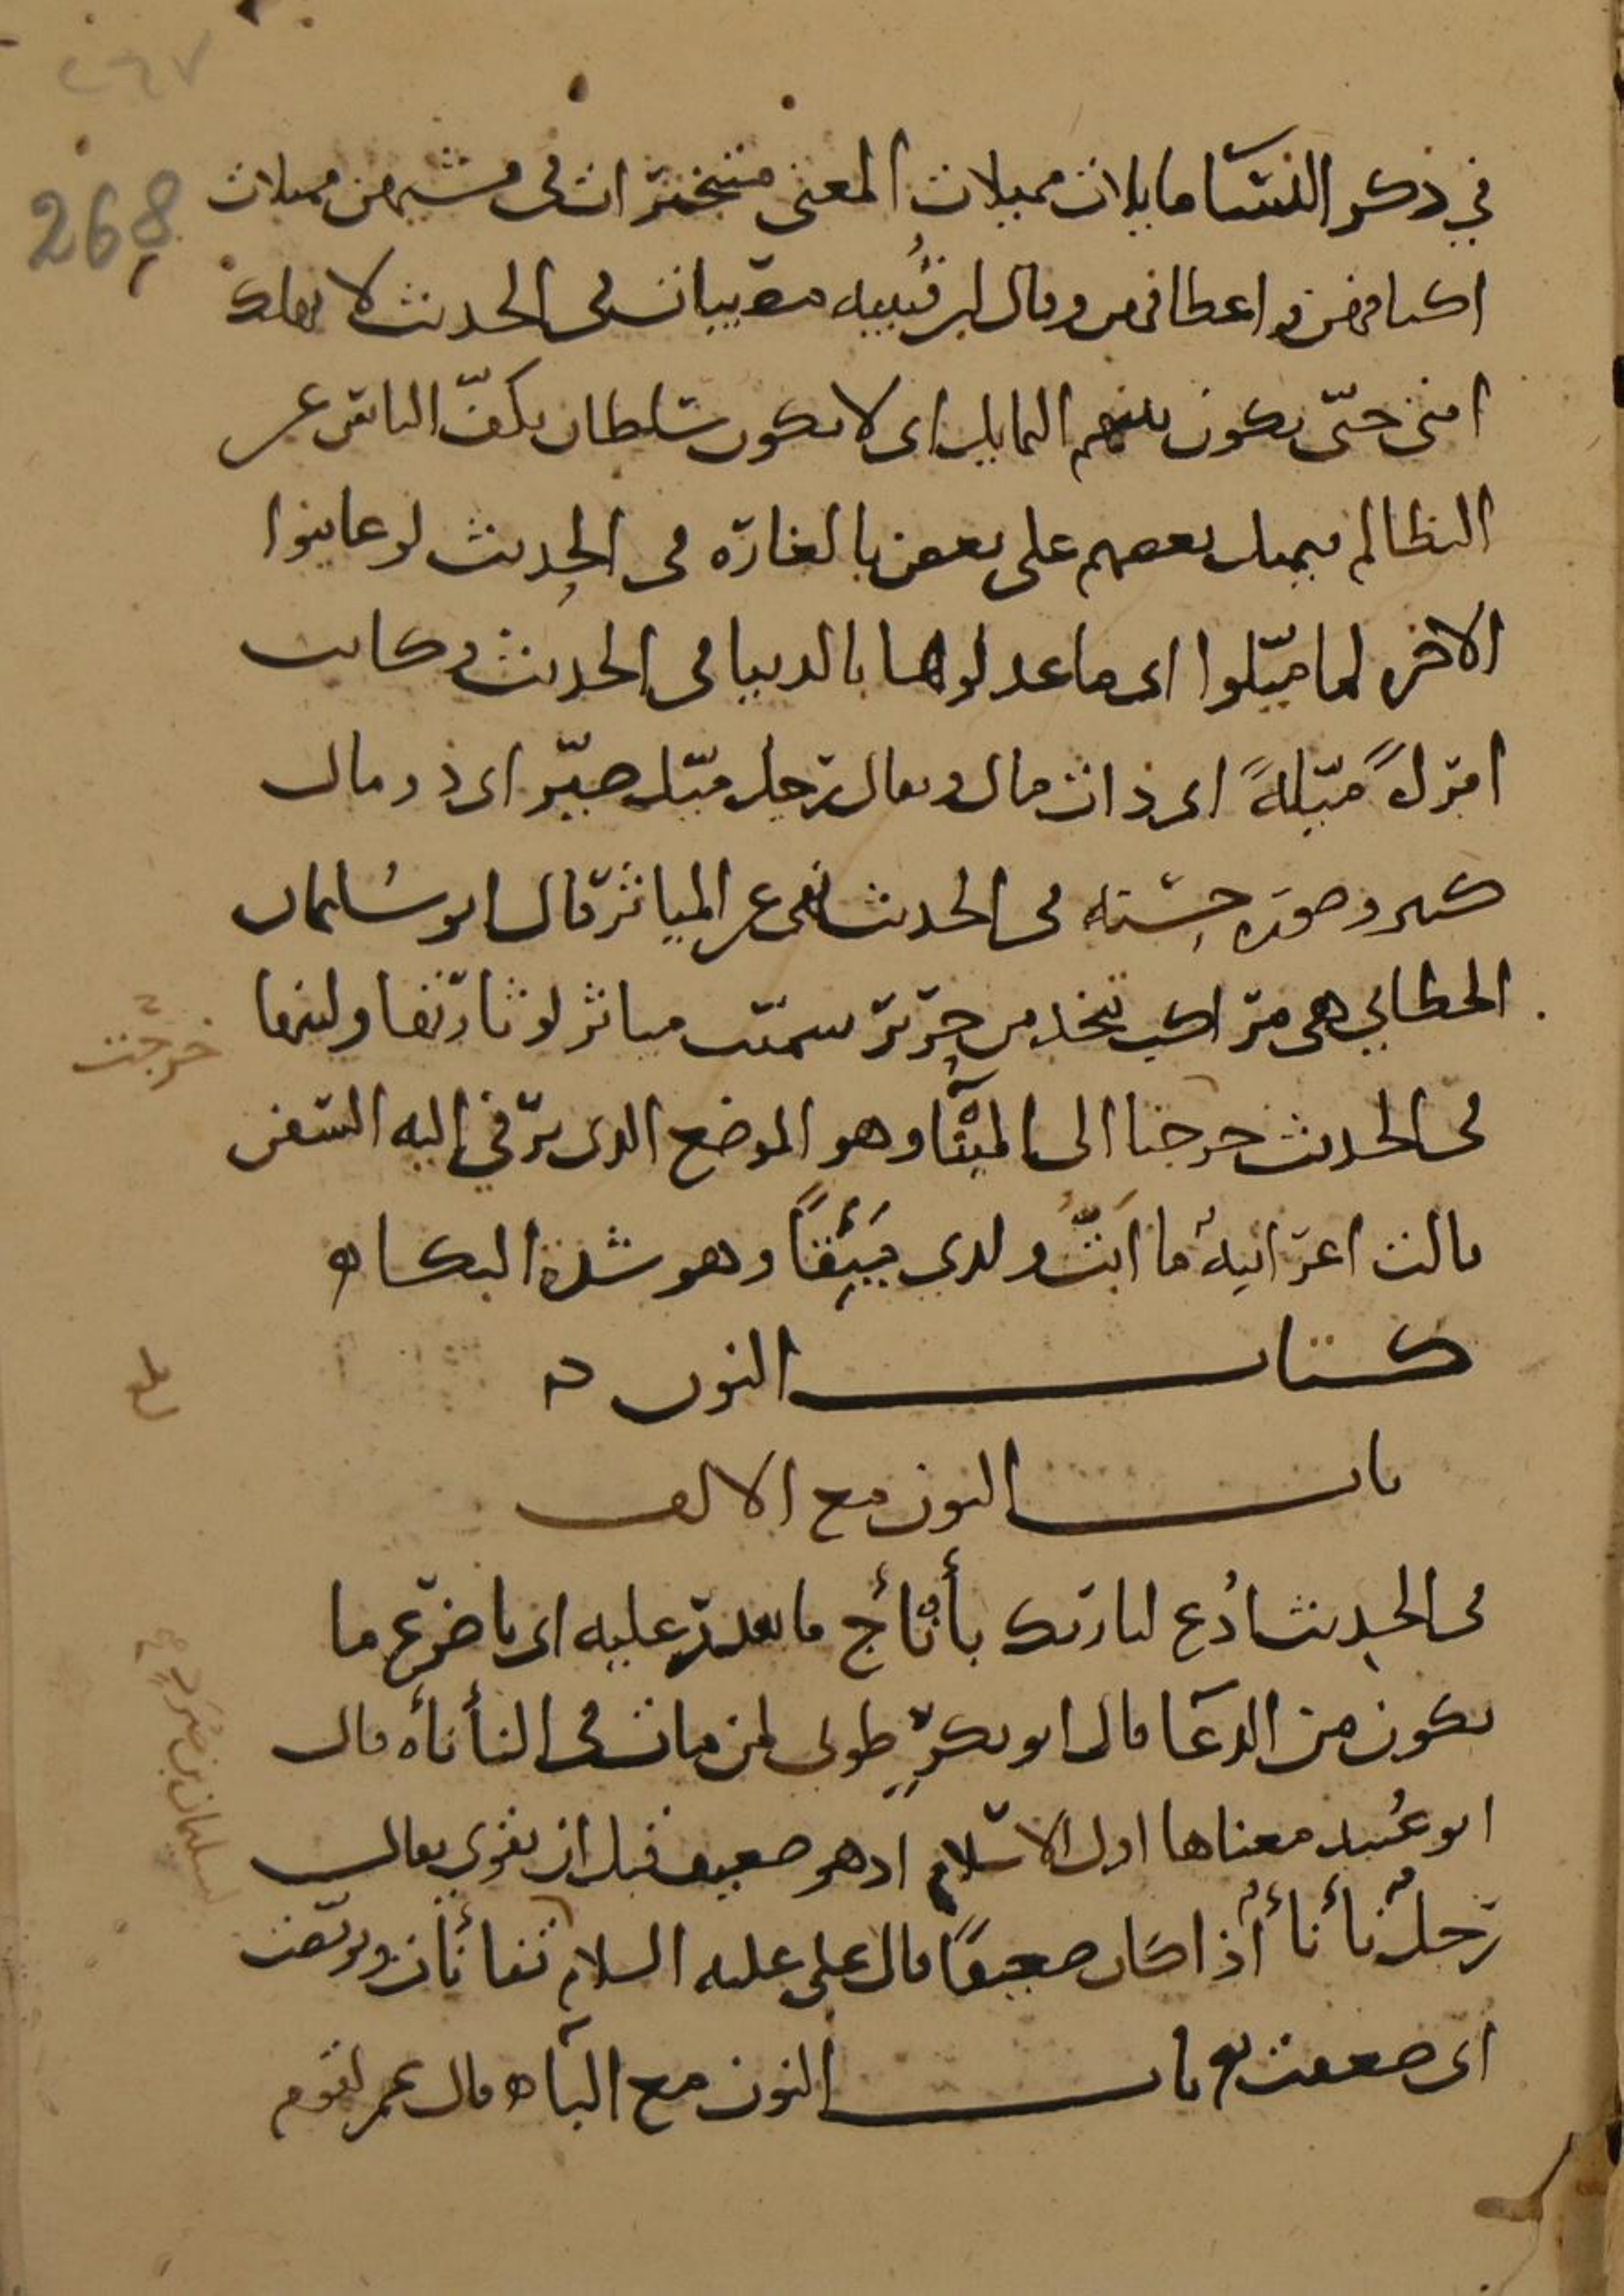 ٢٦٧
268
في ذكر النسا مايلات مميلات المعنى متبخترات في مشيهن مميلات
اكتافهن و اعطافهن وقال ابن قتيبه في الحديث لا تهلك
امتي حتّى يكون بينهم التمايل اى لا يكون سلطان يكفّ الناس عن
التظالم فيميل بعضهم على بعض بالغارة في الحديث لو عاينوا
الاخرة لما ميّلوا اى ما عدلوا بالدنيا في الحديث وكانت
امرأةً ميّلةً اى ذات مال ويقال رجل ميّل صيّر اى ذو مال
كثير وصورة حسنة في الحديث نهى عن المياثر قال ابو سليمان
الخطابي هي مراكب تتخذ من حرير سميّت مياثر لوثارتها ولينها
في الحديث خرجنا الى الميتا وهو الموضع الذى ترفي اليه السفن
قالت اعرابيةٌ ما ابَتُّ ولدى مَئِقًا وهو شدة البكا ه
كتاب النون ه
باب النون مع الالف
في الحديث ادُع لنا ربك بأنْأَج ما تقدر عليه اى باضرع ما
يكون من الدعا قال ابو بكرٍ طوبى لمن مات في النأنأه قال
ابو عُبيد معناها اول الاسلام اذ هو ضعيف قبل ان يقوى يقال
رجلٌ نأنأٌ اذا كان ضعيفًا قال علي عليه السلام تنأنأت وتربصت
اى ضعفت باب النون مع البا ه قال عمر لقوم
خرجت
لسليمان بن صرد